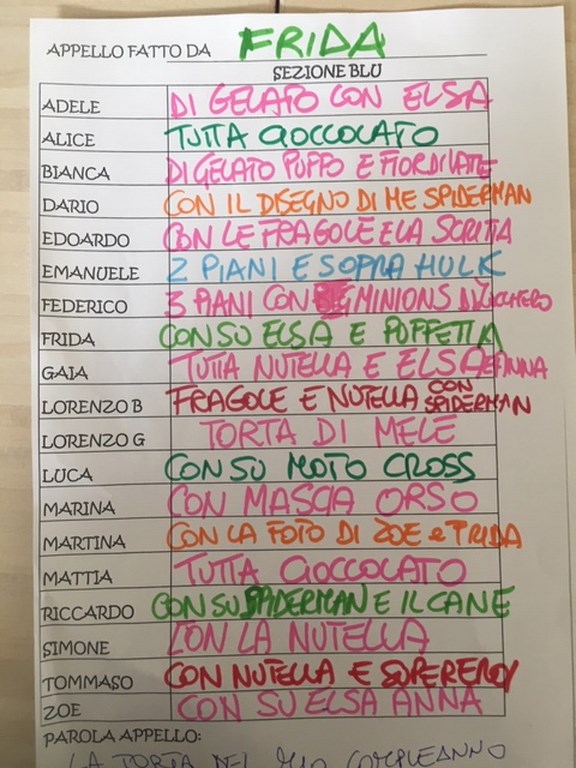 APPELLO FATTO DA FRIDA
SEZIONE BLU
ADELE DI GELATO CON ELSA
ALICE TUTTA CIOCCOLATO
BIANCA DI GELATO PUFFO E FIORDILATTE
DARIO CON IL DISEGNO DI ME SPIDERMAN
EDOARDO CON LE FRAGOLE E LA SCRITTA
EMANUELE 2 PIANI E SOPRA HULK
FEDERICO 3 PIANI CON MINIONS DI ZUCCHERO
FRIDA CON SU ELSA E PUFFETTA
GAIA TUTTA NUTELLA E ELSA E ANNA
LORENZO B FRAGOLE E NUTELLA CON SPIDERMAN
LORENZO G TORTA DI MELE
LUCA CON SU MOTO CROSS
MARINA CON MASCIA ORSO
MARTINA CON LA FOTO DI ZOE e FRIDA
MATTIA TUTTA CIOCCOLATO
RICCARDO CON SU SPIDERMAN E IL CANE
SIMONE CON LA NUTELLA
TOMMASO CON NUTELLA E SUPEREROI
ZOE CON SU ELSA ANNA
PAROLA APPELLO:
LA TORTA DEL MIO COMPLEANNO